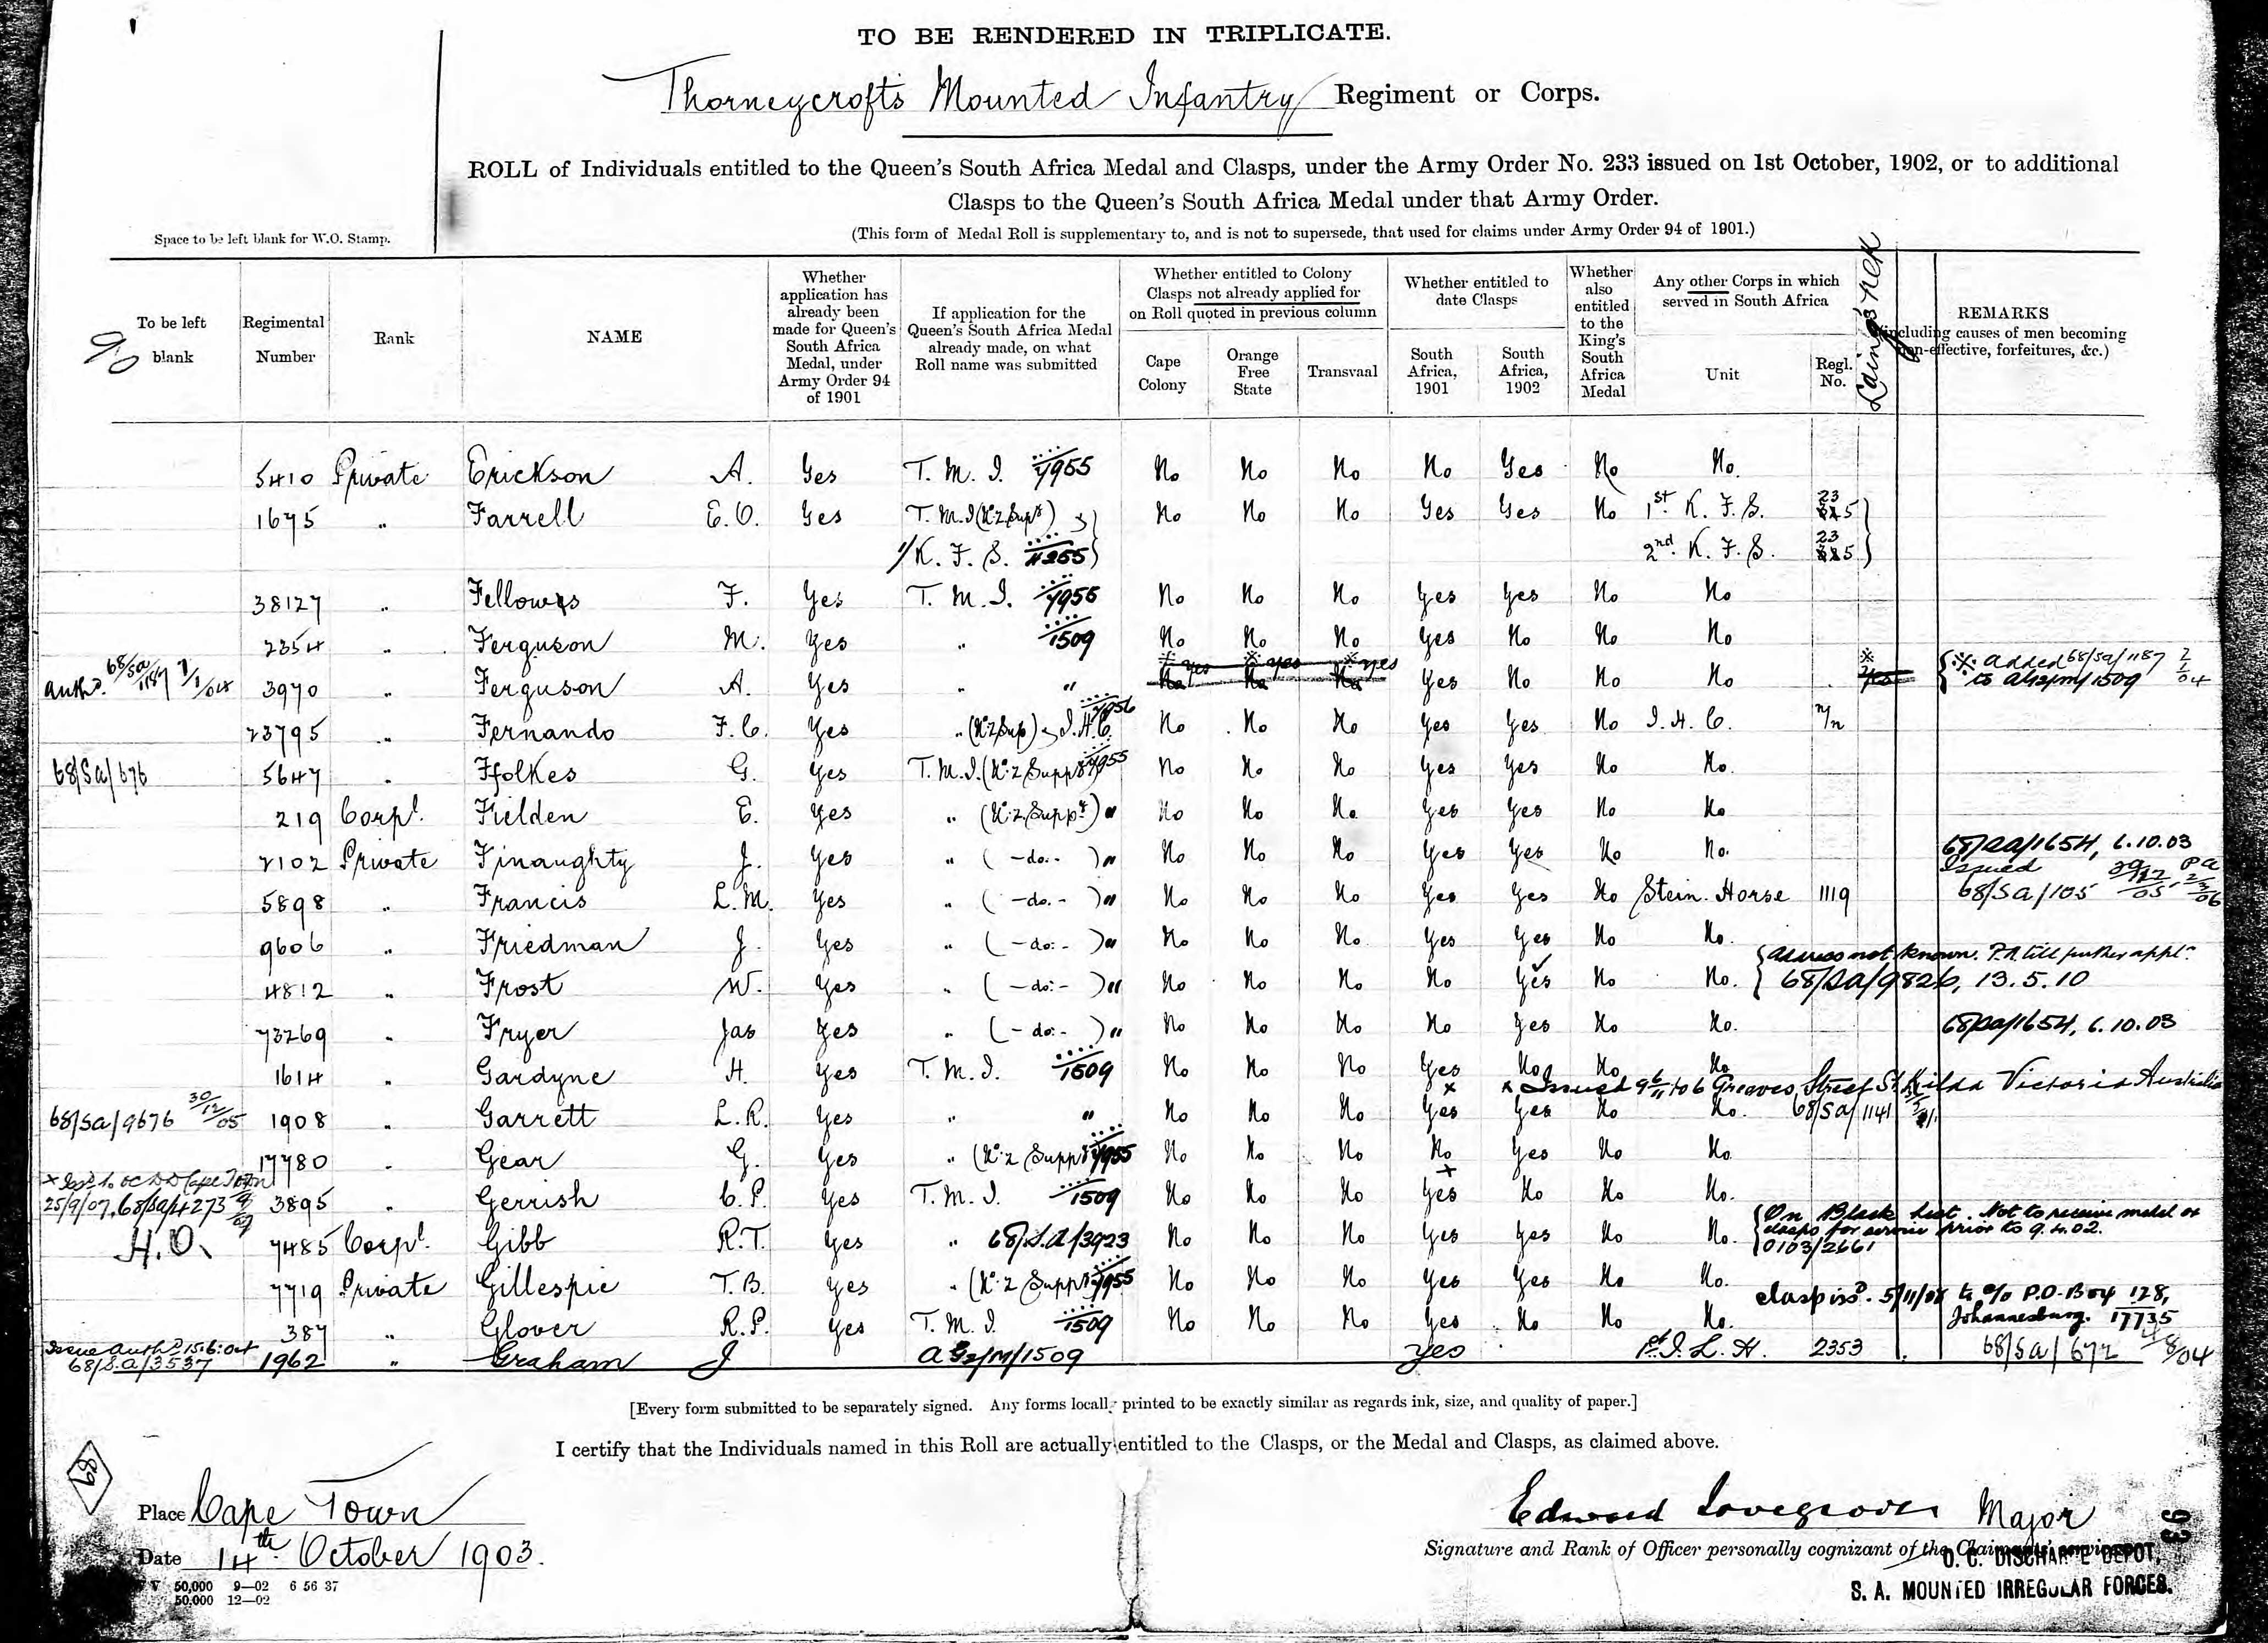 TO BE RENDERED IN TRIPLICATE.
Thorneycrofts Mounted Infantry Regiment or Corps.
ROLL of Individuals entitled to the Queen's South Africa Medal and Clasps, under the Army Order No. 233 issued on 1st October, 1902, or to additional
Clasps to the Queen's South Africa Medal under that Army Order.
Space to be left blank for W.O. Stamp.
(This form of Medal Roll is supplementary to, and is not to supersede, that used for claims under Army Order 94 of 1901.)
To be left blank
Regimental Number
Rank
NAME
Whether application has already been made for Queen's South Africa Medal, under Army Order 94 of 1901
If application for the Queen's South Africa Medal already made, on what Roll name was submitted
Whether entitled to Colony Clasps not already applied for on Roll quoted in previous column
Cape Colony
Orange Free State
Transvaal
Whether entitled to date Clasps
South Africa, 1901
South Africa, 1902
Whether also entitled to the King's South Africa Medal
Any other Corps in which served in South Africa
Unit
Regl. No.
Laing's Nek
REMARKS
(including causes of men becoming non-effective, forfeitures, &c.)
5410 Private Erickson A. Yes T. M. I. 7955 No No No No Yes No No.
1675 " Farrell E.O. Yes T. M. I (No 2 Supt) No No No Yes Yes No 1st K. F. S. 23 5
1/K. F. S. 4255 2nd K. F. S. 23 5
38127 " Fellows F. Yes T. M. I. 7955 No No No Yes Yes No No
2354 " Ferguson M. Yes " 1509 No No No Yes No No No
Authd. 68/Sa/1187 7/1/04 3970 " Ferguson A. Yes " " ※ yes ※ yes ※ yes No No No Yes No No No ※ yes
※ added 68/Sa/1187 2/1/04
to AG2/M/1509
23795 " Fernando F.C. Yes " (No 2 Sup) I.H.C. 7956 No No No Yes Yes No I. H. C. n/n
68/Sa/676 5647 " Ffolkes G. Yes T. M. I. (No 2 Suppt 7955 No No No Yes Yes No No.
219 Corpl. Fielden E. Yes " (No 2 Suppt) " No No No Yes Yes No No
2102 Private Finaughty J. Yes " ( -do.- ) " No No No Yes Yes No No. 68/Sa/1654, 6.10.03
5898 " Francis L.M. Yes " ( -do.- ) " No No No Yes Yes No Stein. Horse 1119 Issued 68/Sa/105
9606 " Friedman J. Yes " ( -do:- ) " No No No Yes Yes No No.
Address not known. P.A. till further appl.
4812 " Frost W. Yes " ( -do:- ) " No No No No Yes No No. 68/Sa/9826, 13.5.10
73269 " Fryer Jas Yes " ( -do:- ) " No No No No Yes No No. 68/Sa/1654, 6.10.03
1614 " Gardyne H. Yes T. M. I. 1509 No No No Yes No No No
x Issued to 6 Greaves Street St Kilda Victoria Australia
68/Sa/9676 30/12/05 1908 " Garrett L.R. Yes " " No No No x Yes Yes No No. 68/Sa/1141
17780 " Gear G. Yes " (No 2 Suppt 7955 No No No No Yes No No
x Issd to OC DD Cape Town
25/9/07. 68/Sa/4273 3895 " Gerrish C.P. Yes T. M. I. 1509 No No No x Yes No No No.
H.O. 7485 Corpl. Gibb R.T. Yes " 68/S.A/3923 No No No Yes Yes No No.
On Black List. Not to receive medal or
clasps for service prior to 9.4.02.
0103/2661
7719 Private Gillespie T.B. Yes " (No 2 Suppt 7955 No No No Yes Yes No No.
clasp issd. 5/11/08 to c/o P.O. Box 128,
Johannesburg. 17735
387 " Glover R.P. Yes T. M. I. 1509 No No No Yes No No No.
Issue Authd 15:6:04
68/S.a/3537 1962 " Graham J AG2/M/1509 Yes I. L. H. 2353 68/Sa/672 /8/04
[Every form submitted to be separately signed. Any forms locally printed to be exactly similar as regards ink, size, and quality of paper.]
I certify that the Individuals named in this Roll are actually entitled to the Clasps, or the Medal and Clasps, as claimed above.
89
Place Cape Town
Date 14th October 1903.
50,000 9—02 6 56 37
50,000 12—02
Edward Lovegrove Major
Signature and Rank of Officer personally cognizant of the Claimants' services
O. C. DISCHARGE DEPOT,
S. A. MOUNTED IRREGULAR FORCES.
93